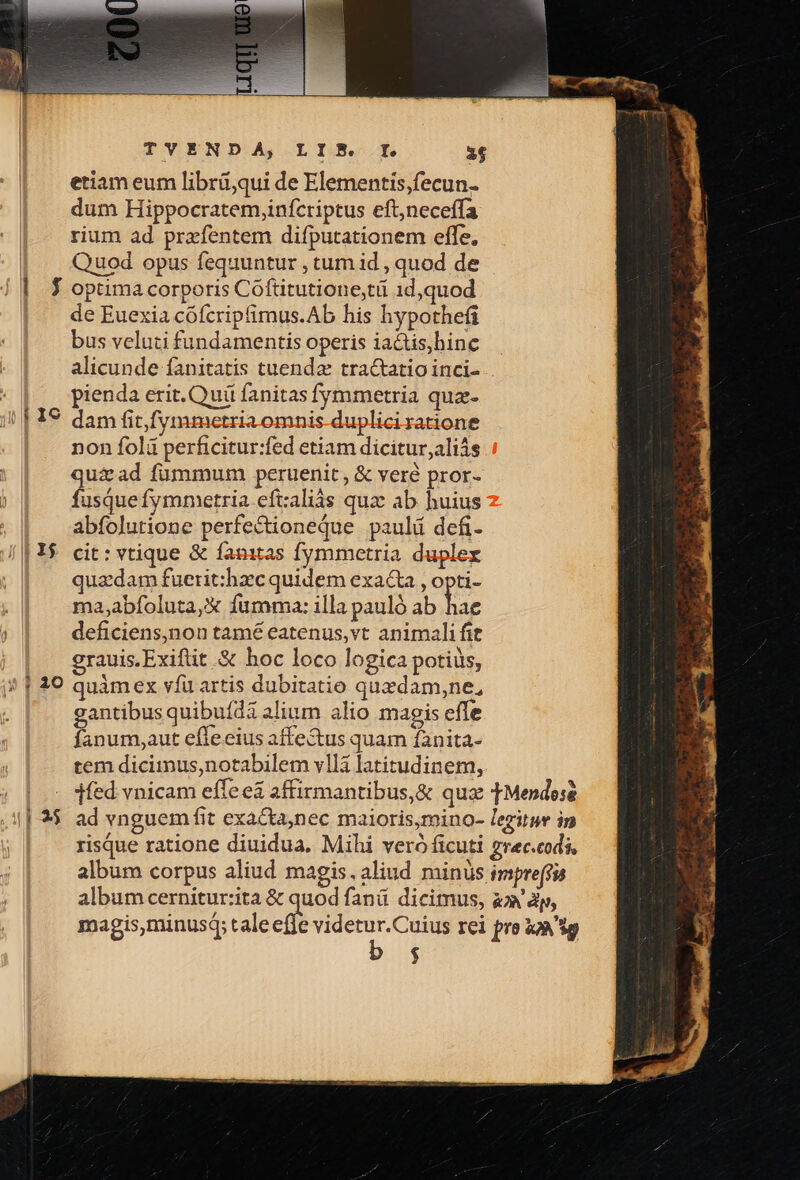 002
em libri
TVENDA, LIB. I. 25
etiam eum librū,qui de Elementis,ſecun-
dum Hippocratem,inſcriptus eſt,neceſſa
rium ad præſentem diſputationem eſſe.
Quod opus ſequuntur , tum id , quod de
5 optima corporis Cōſtitutione,tū id,quod
de Euexia cōſcripſimus. Ab his hypotheſi
bus veluti fundamentis operis iactis,hinc
alicunde ſanitatis tuendæ tractatio inci-
pienda erit. Quū ſanitas ſymmetria quæ-
10 dam ſit,ſymmetria omnis duplici ratione
non ſolū perficitur:ſed etiam dicitur,aliâs 1
quæ ad ſummum peruenit , & verè pror-
fusq́ue ſymmetria eſt:aliàs quæ ab huius 2
abſolutione perfectioneq́ue paulū defi-
15 cit : vtique & ſanitas ſymmetria duplex
quædam fuerit:hæc quidem exacta , opti-
ma,abſoluta,& ſumma: illa paulò ab hac
deficiens,non tamē eatenus,vt animali ſit
grauis. Exiſtit & hoc loco logica potiùs,
20 quàm ex vſu artis dubitatio quædam,ne,
gantibus quibuſdā alium alio magis eſſe
ſanum,aut eſſe eius affectus quam ſanita-
tem dicimus,notabilem vllā latitudinem,
‡ſed vnicam eſſe eā affirmantibus,& quæ ‡Mendosè
25 ad vnguem ſit exacta,nec maioris,mino- legitur in
risq́ue ratione diuidua. Mihi verò ſicuti græc.codi.
album corpus aliud magis, aliud minùs impreſſis
album cernitur:ita & quod ſanū dicimus, ἀλλ' ἀρ,
magis,minusq́; tale eſſe videtur. Cuius rei pro ἀλλ'
b 5